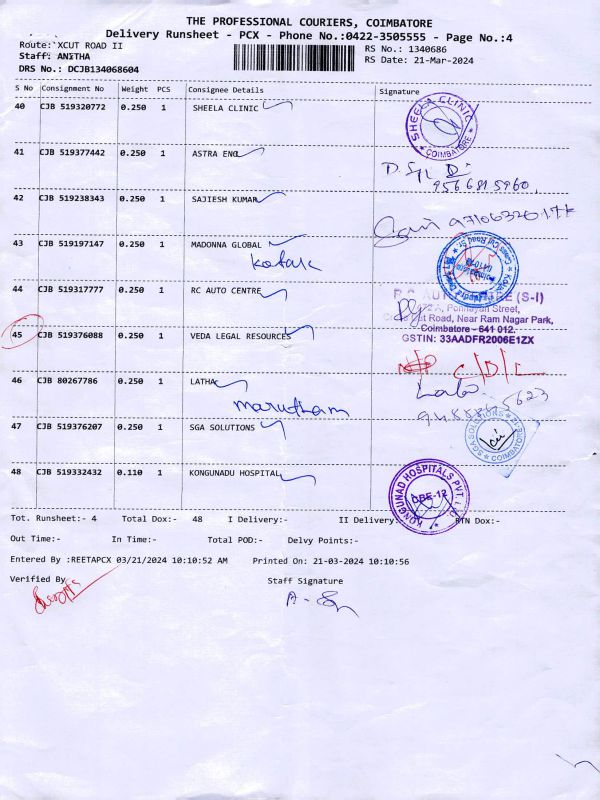 THE PROFESSIONAL COURIERS, COIMBATORE
Delivery Runsheet - PCX - Phone No.:0422-3505555 - Page No.:4
Route:`XCUT ROAD II
RS No.: 1340686
Staff: ANITHA
RS Date: 21-Mar-2024
DRS No.: DCJB134068604
S No Consignment No Weight PCS Consignee Details Signature
40 CJB 519320772 0.250 1 SHEELA CLINIC
SHEELA CLINIC
* COIMBATORE *
41 CJB 519377442 0.250 1 ASTRA ENG
9566815960.
42 CJB 519238343 0.250 1 SAJIESH KUMAR
43 CJB 519197147 0.250 1 MADONNA GLOBAL
Kotak
44 CJB 519317777 0.250 1 RC AUTO CENTRE
(S-I)
Street,
Road, Near Ram Nagar Park,
Coimbatore - 641 012.
GSTIN: 33AADFR2006E1ZX
45 CJB 519376088 0.250 1 VEDA LEGAL RESOURCES
C/D/L
46 CJB 80267786 0.250 1 LATHA
Marutham
47 CJB 519376207 0.250 1 SGA SOLUTIONS
SGA SOLUTIONS
COIMBATORE
48 CJB 519332432 0.110 1 KONGUNADU HOSPITAL
KONGUNAD HOSPITALS PVT. LTD
CBE-12
Tot. Runsheet:- 4 Total Dox:- 48 I Delivery:- II Delivery RTN Dox:-
Out Time:- In Time:- Total POD:- Delvy Points:-
Entered By :REETAPCX 03/21/2024 10:10:52 AM Printed On: 21-03-2024 10:10:56
Verified By
Staff Signature